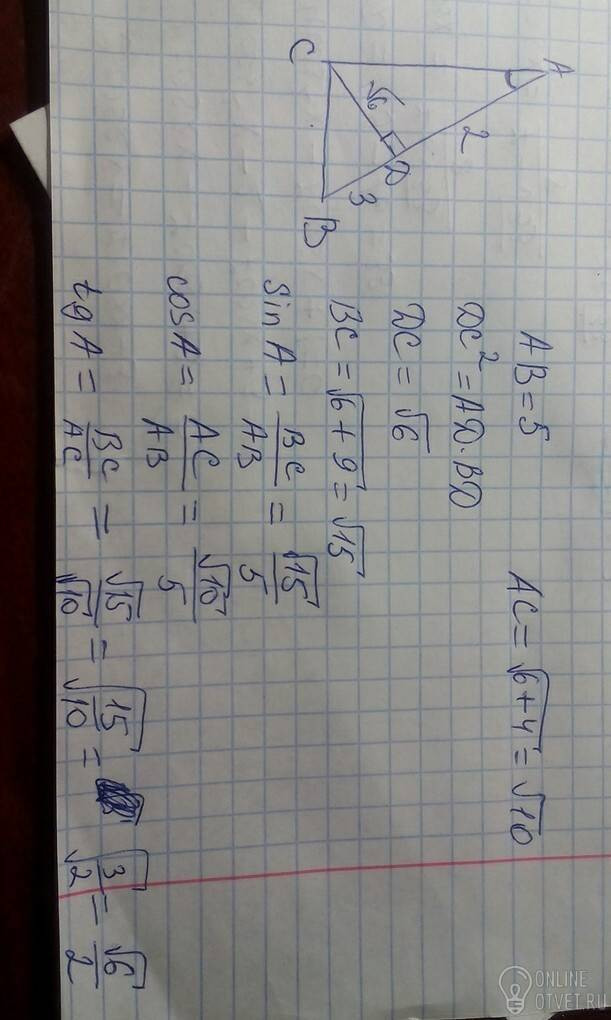 C
A
√6
D
2
3
B
AB = 5    AC = √6+4 = √10
DC² = AD·BD
DC = √6
BC = √6+9 = √15
sin A = BC/AB = √15/5
cos A = AC/AB = √10/5
tg A = BC/AC = √15/√10 = √15/10 = √3/2 = √6/2
ONLINE
OTVET.RU